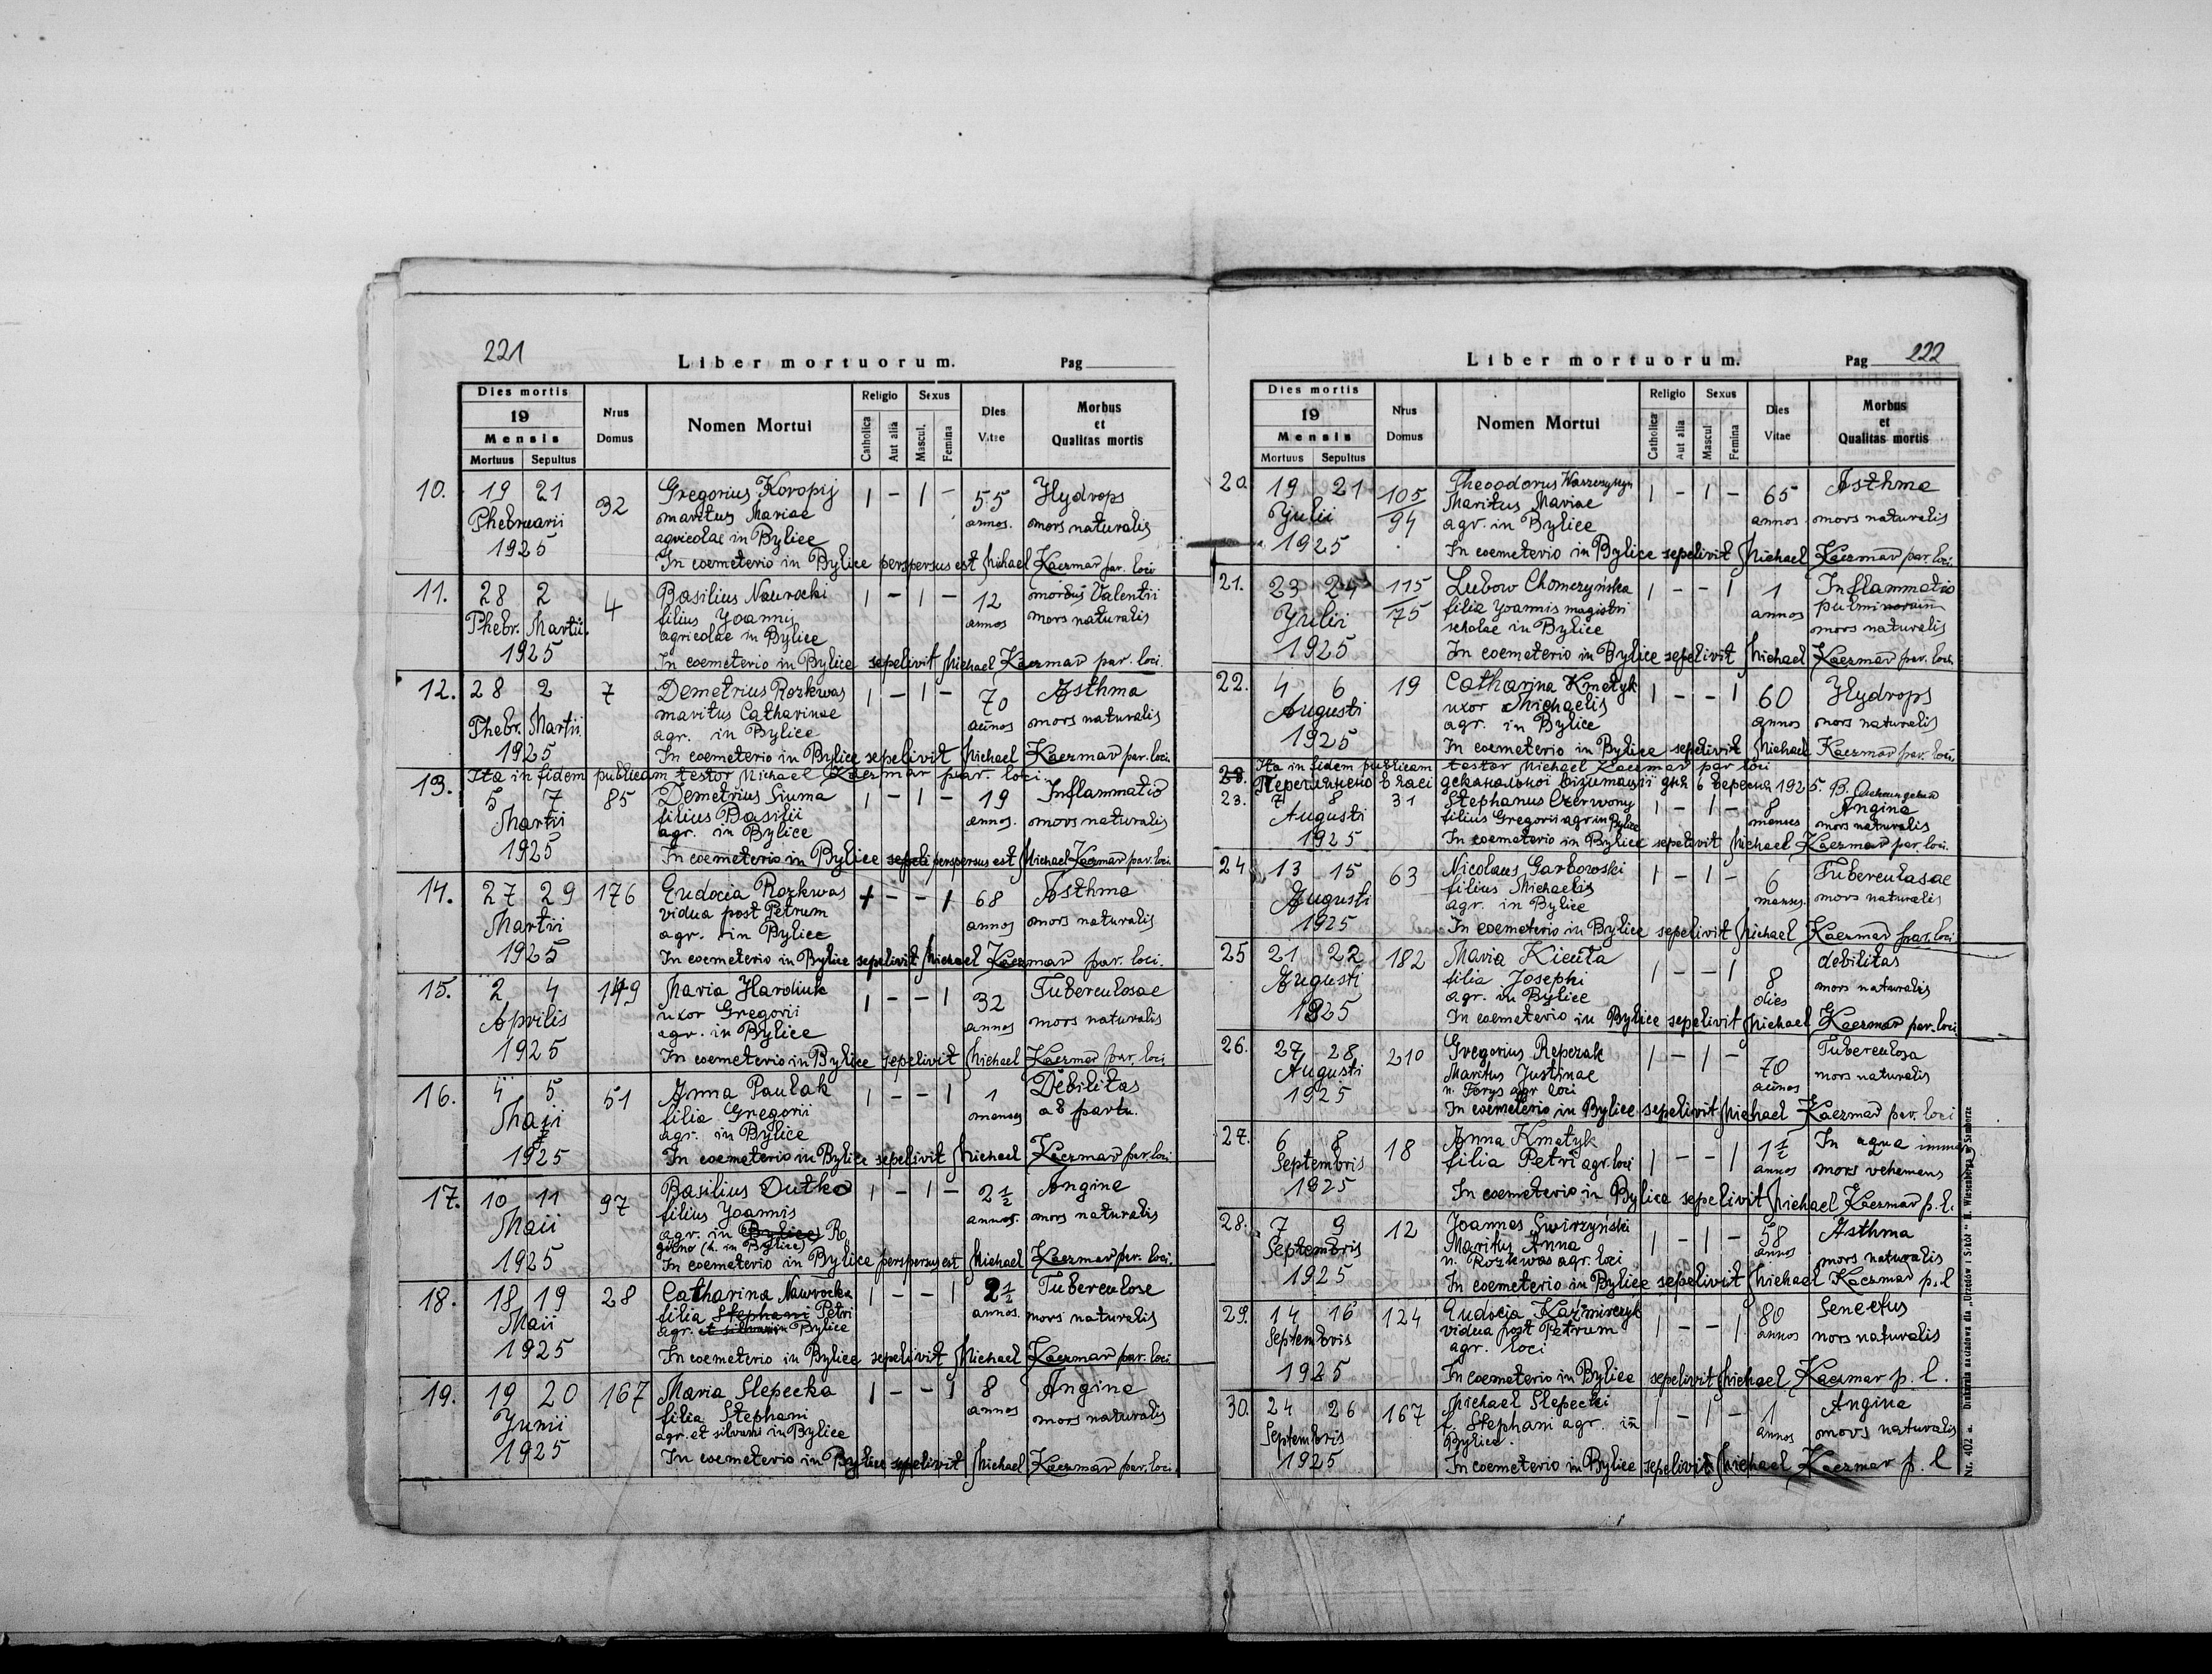 221
Liber mortuorum.
Pag
Dies mortis
19
Mensis
Mortuus Sepultus
Nrus Domus
Nomen Mortui
Religio
Catholica
Aut alia
Sexus
Mascul.
Femina
Dies Vitae
Morbus et Qualitas mortis
10. 19 21 32 Gregorius Koropij 1 - 1 - 55 Hydrops
Phebruarii maritus Mariae annos. mors naturalis
1925 agricolae in Bylice
In coemeterio in Bylice perspersus est Michael Kaczmar par. loci
11. 28 2 4 Basilius Nawrocki 1 - 1 - 12 morbus Valentii
Phebr. Martii. filius Yoannis annos mors naturalis
agricolae in Bylice
1925 In coemeterio in Bylice sepelivit Michael Kaczmar par. loci.
12. 28 2 7 Demetrius Rozkwas 1 - 1 - 70 Asthma
Phebr. Martii. maritus Catharinae annos mors naturalis
agr. in Bylice
1925 In coemeterio in Bylice sepelivit Michael Kaczmar par. loci.
Ita in fidem publicam testor Michael Kaczmar par. loci.
13. 5 7 85 Demetrius Siuma 1 - 1 - 19 Inflammatio
Martii filius Basilii annos. mors naturalis
agr. in Bylice
1925 In coemeterio in Bylice sepeli perspersus est Michael Kaczmar par. loci.
14. 27 29 176 Eudocia Rozkwas + - - 1 68 Asthma
Martii vidua post Petrum annos mors naturalis
agr. in Bylice
1925 In coemeterio in Bylice sepelivit Michael Kaczmar par. loci.
15. 2 4 149 Maria Hardiuk 1 - - 1 32 Tuberculosae
Aprilis uxor Gregorii annos mors naturalis
agr. in Bylice
1925 In coemeterio in Bylice sepelivit Michael Kaczmar par. loci.
16. 4 5 51 Anna Paulak 1 - - 1 1 Debilitas
Maii filia Gregorii menses a8 partu.
agr. in Bylice
1925 In coemeterio in Bylice sepelivit Michael Kaczmar par. loci.
17. 10 11 97 Basilius Dutko 1 - 1 - 2½ Angine
Maii filius Yoannis annos. mors naturalis
agr. in Bylice) Ro
góżno (h. in Bylice)
1925 In coemeterio in Bylice perspersus est Michael Kaczmar par. loci.
18. 18 19 28 Catharina Nawrocka 1 - - 1 2½ Tuberculose
Maii filia Stephani Petri annos. mors naturalis
agr. et silvani in Bylice
1925 In coemeterio in Bylice sepelivit Michael Kaczmar par. loci
19. 19 20 167 Maria Slepecka 1 - - 1 8 Angine
Yunii filia Stephani annos mors naturalis
agr. et silvani in Bylice
1925 In coemeterio in Bylice sepelivit Michael Kaczmar par. loci
Liber mortuorum.
Pag 222
Dies mortis
19
Mensis
Mortuus Sepultus
Nrus Domus
Nomen Mortui
Religio
Catholica
Aut alia
Sexus
Mascul
Femina
Dies Vitae
Morbus et Qualitas mortis
20. 19 21 105/94 Theodorus 1 - 1 - 65 Asthme
Yulii Maritus Mariae annos mors naturalis
1925 agr. in Bylice
In coemeterio in Bylice sepelivit Michael Kaczmar par. loci.
21. 23 24 115/75 Lubow Chomczyńska 1 - - 1 1 Inflammatio
Yulii filia Yoannis magistri annos
scholae in Bylice mors naturalis
1925 In coemeterio in Bylice sepelivit Michael Kaczmar par. loci.
22. 4 6 19 Catharina Kmetyk 1 - - 1 60 Hydrops
Augusti uxor Michaelis annos mors naturalis
agr. in Bylice
1925 In coemeterio in Bylice sepelivit Michael Kaczmar par. loci.
Ita in fidem publicam testor Michael Kaczmar par loci
28. Перегляжено в часі деканальної візитації дня 6 вересня 1925. В.
23. 7 8 31 Stephanus Czerwony 1 - 1 - 8 Angine
Augusti filius Gregorii agr in Bylice menses mors naturalis
1925 In coemeterio in Bylice sepelivit Michael Kaczmar par loci.
24 13 15 63 Nicolaus Garbowski 1 - 1 - 6 Tuberculasae
Augusti filius Michaelis menses. mors naturalis
agr. in Bylice
1925 In coemeterio in Bylice sepelivit Michael Kaczmar par. loci
25 21 22 182 Maria Kicuta 1 - - 1 8 debilitas
Augusti filia Josephi dies mors naturalis
agr. in Bylice
1925 In coemeterio in Bylice sepelivit Michael Kaczmar par. loci
26. 27 28 210 Gregorius Repczak 1 - 1 - 70 Tuberculosa
Augusti Maritus Justinae annos mors naturalis
1925 n. Forys agr loci
In coemeterio in Bylice sepelivit Michael Kaczmar par. loci
27. 6 8 18 Anna Kmetyk 1 - - 1 1½ In aqua immer
Septembris filia Petri agr. loci annos mors vehemens
1925 In coemeterio in Bylice sepelivit Michael Kaczmar p. l.
28. 7 9 12 Joannes Swirzyński 1 - 1 - 58 Asthma
Septembris Maritus Anna annos mors naturalis
n. Rozkwas agr. loci
1925 In coemeterio in Bylice sepelivit Michael Kaczmar p. l
29. 14 16 124 Eudocia Kazimirczyk 1 - - 1 80 Senectus
Septembris vidua post Petrum annos mors naturalis
agr. loci
1925 In coemeterio in Bylice sepelivit Michael Kaczmar p. l.
30. 24 26 167 Michael Slepecki 1 - 1 - 1 Angine
Septembris f. Stephani agr. in annos mors naturalis
Bylice.
1925 In coemeterio in Bylice sepelivit Michael Kaczmar p. l
Nr. 402 a. Drukarnia nakładowa dla „Urzędów i Szkół" H. Wiesenberga w Samborze